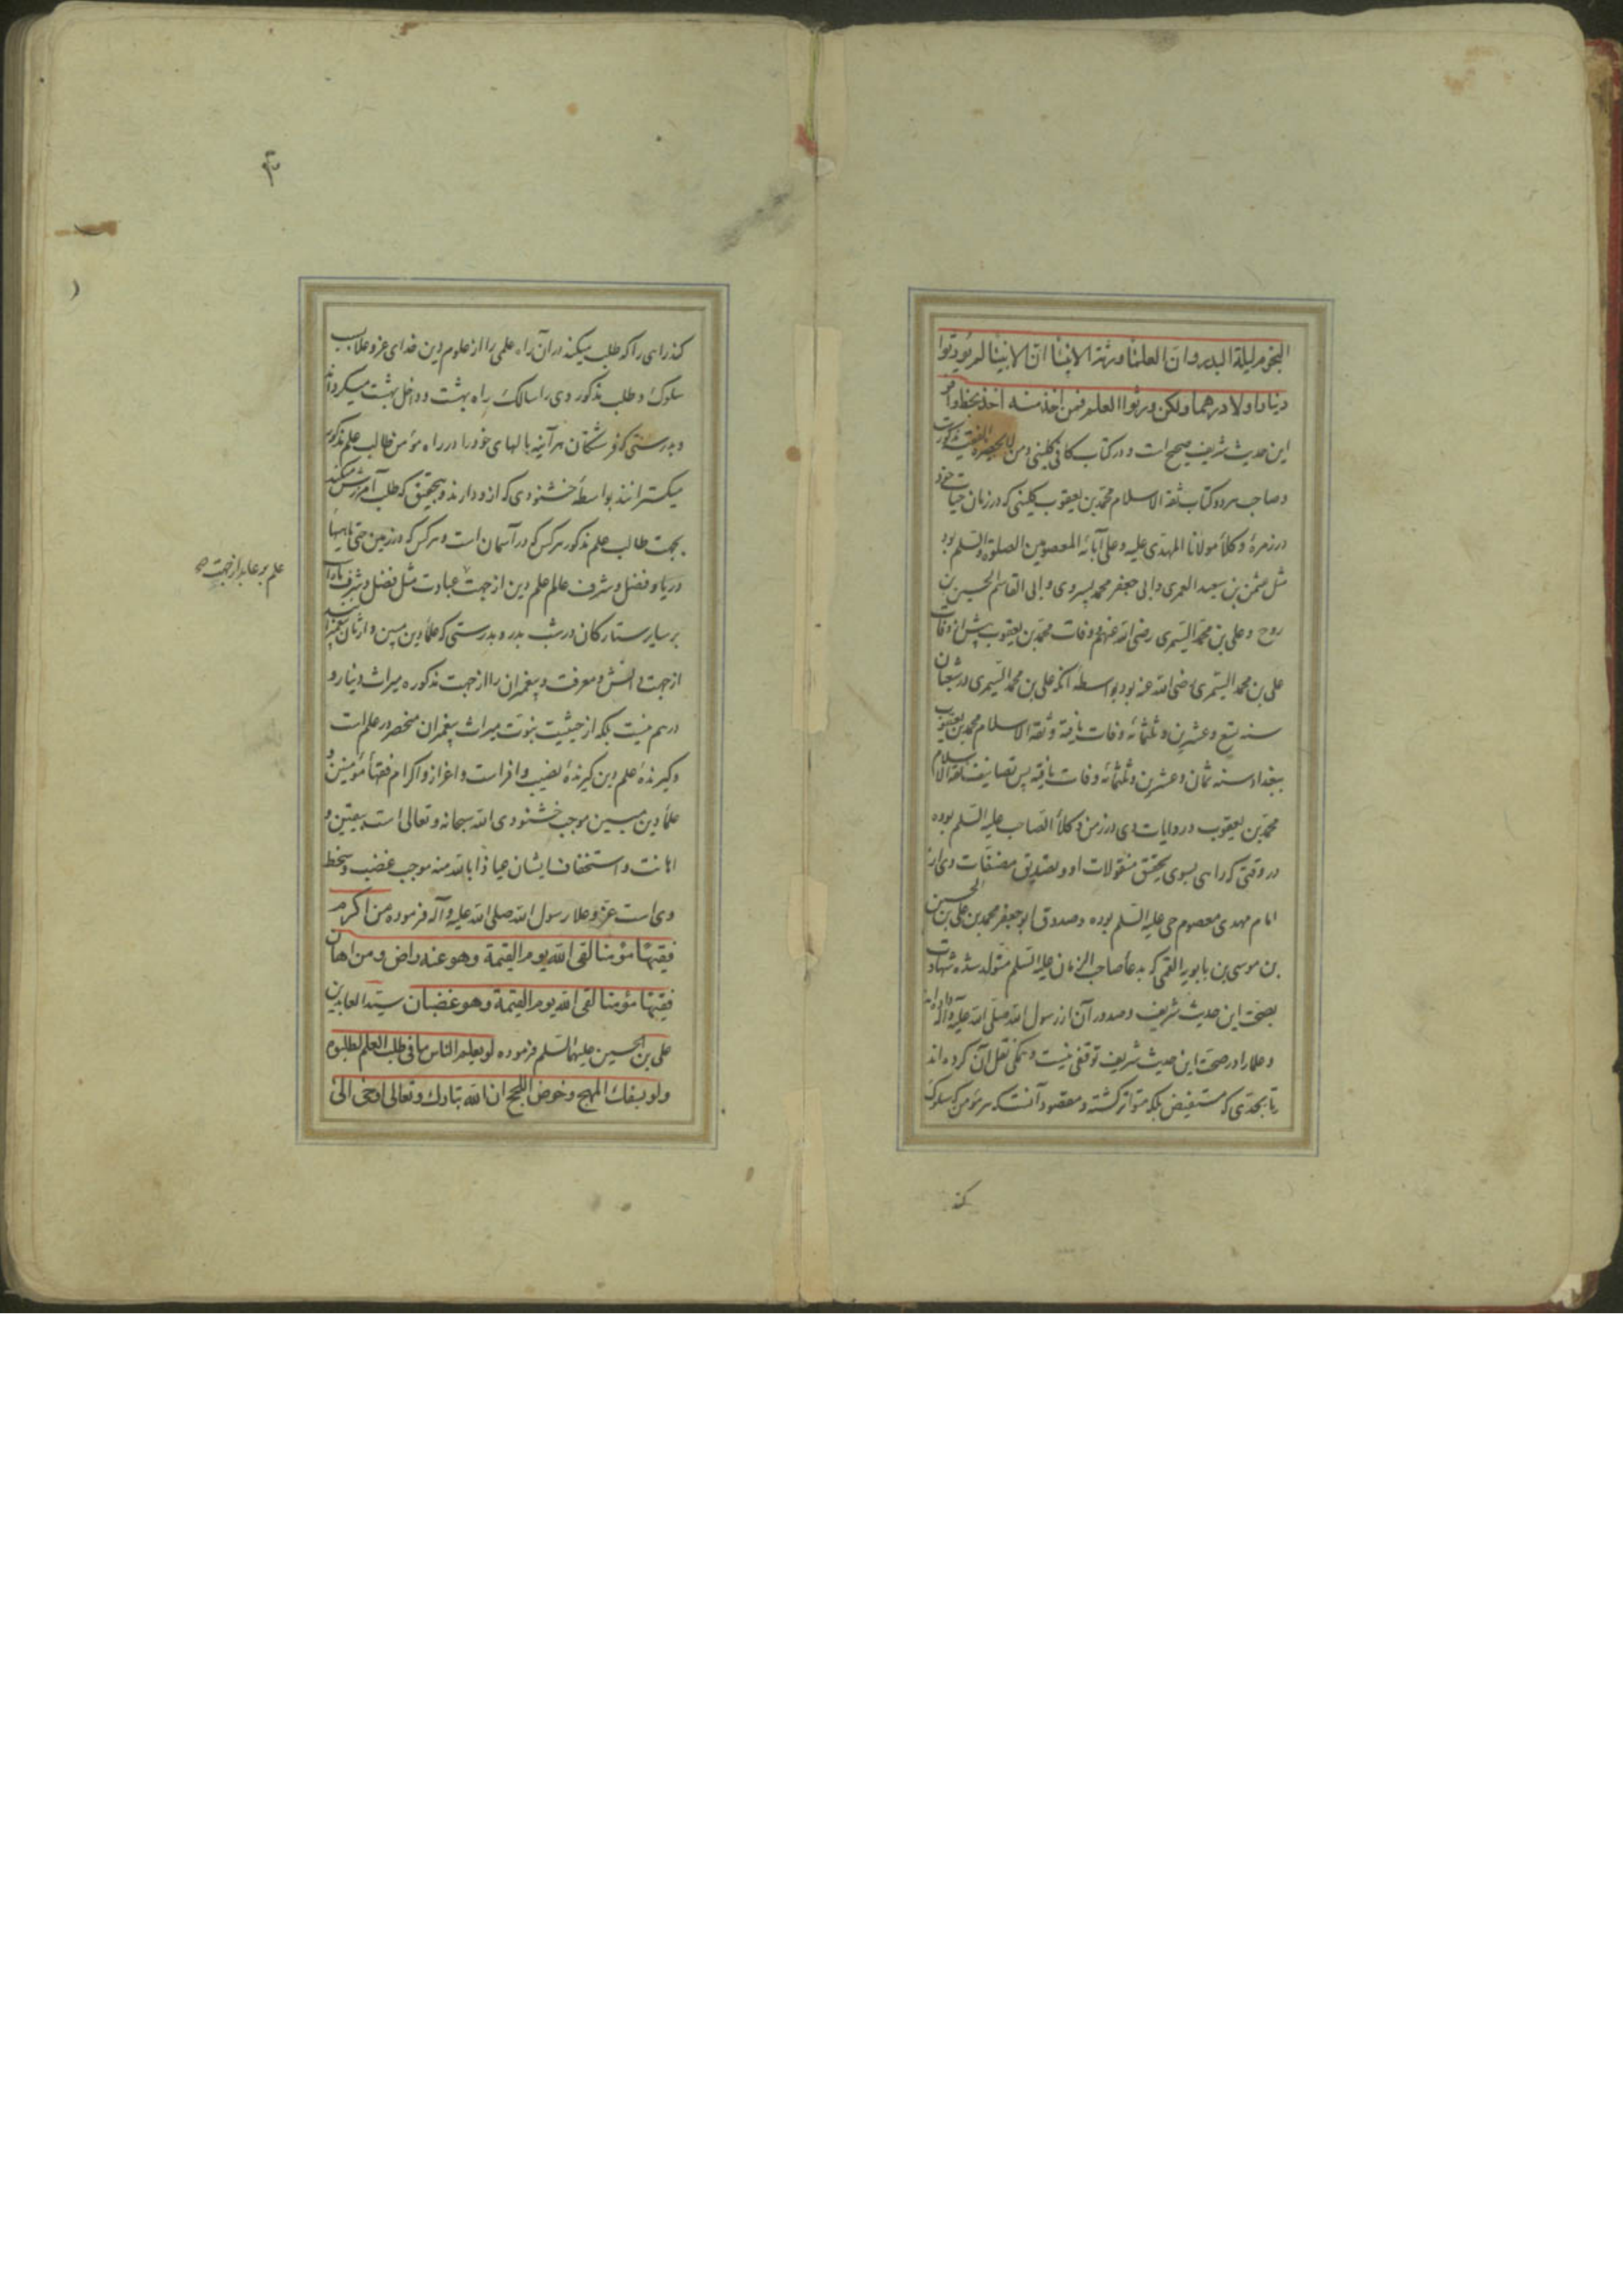 النجوم ليلة البدر وان العلماء ورثة الانبياء ان الانبياء لم يورثوا
دينارا ولا درهما ولكن ورثوا العلم فمن اخذ منه اخذ بحظ وافر
این حدیث شریف صحیح است و در کتاب کافی کلینی و من لا یحضره الفقیه مذکورست
و صاحب هر دو کتاب ثقة الاسلام محمد بن یعقوب کلینی که در زمان حیات خود
در زمرهٔ وکلاء مولانا المهدی علیه و علی آبائه المعصومین الصلوة والسلم بود
مثل عثمن بن سعید العمری و ابی جعفر محمد پسر وی و ابی القاسم الحسین بن
روح و علی بن محمد السیمری رضی الله عنهم و وفات محمد بن یعقوب پیش از وفات
علی بن محمد السیمری رضی الله عنه بود بواسطهٔ آنکه علی بن محمد السیمری در شعبان
سنه تسع و عشرین و ثلثمائه وفات یافته و ثقة الاسلام محمد بن یعقوب
ببغداد سنه ثمان و عشرین و ثلثمائه وفات یافته پس تصانیف ثقة الاسلام
محمد بن یعقوب در روایات وی در زمن وکلاء الصاحب علیه السلم بوده
در وقتی که راهی بسوی تحقق منقولات او و تصدیق مصنفات وی از
امام مهدی معصوم حی علیه السلم بوده و صدوق ابو جعفر محمد بن علی بن الحسین
بن موسی بن بابویه القمی که بدعاء صاحب الزمان علیه السلم متولد شده شهادت
بصحت این حدیث شریف و صدور آن از رسول الله صلی الله علیه وآله داده اند
و علما را در صحت این حدیث شریف توقفی نیست و همگی نقل آن کرده اند
تا بحدی که مستفیض بلکه متواتر گشته و مقصود آنست که هر مؤمن که سلوک
کند
کند راهی را که طلب میکند در آن راه علمی را از علوم دین خدای عز و علا بسبب
سلوک و طلب مذکور وی را سالک راه بهشت و داخل بهشت میگرداند
و بدرستی که فرشتگان هر آینه بالهای خود را در راه مؤمن طالب علم مذکور
میگسترانند بواسطهٔ خشنودی که از و دارند و بتحقیق که طلب آمرزش میکند
بجهت طالب علم مذکور هر کس که در آسمان است و هر کس که در زمین حتی ماهیها
دریا و فضل و شرف عالم علم دین از جهت عبادت مثل فضل و شرف ماه است
بر سایر ستارگان در شب بدر و بدرستی که علماء دین مبین وارثان پیغمبرانند
از جهت دانش و معرفت و پیغمبران را از جهت مذکوره میراث دینار و
درهم نیست بلکه از حیثیت نبوت میراث پیغمبران منحصر در علم است
و گیرندهٔ علم دین گیرندهٔ نصیب وافر است و اعزاز و اکرام فقهاء مؤمنین و
علماء دین مبین موجب خشنودی الله سبحانه و تعالی است بیقین و
اهانت و استخفاف ایشان عیاذا بالله منه موجب غضب و سخط
وی است عز و علا رسول الله صلی الله علیه و آله فرموده من اكرم
فقيها مؤمنا لقى الله يوم القيمة وهو عنه راض ومن اهان
فقيها مؤمنا لقى الله يوم القيمة وهو غضبان سید العابدین
علی بن الحسین علیهما السلم فرموده لو يعلم الناس ما فى طلب العلم لطلبوه
ولو بسفك المهج وخوض اللجج ان الله تبارك وتعالى اوحى الى
علم بر عابد از جهت